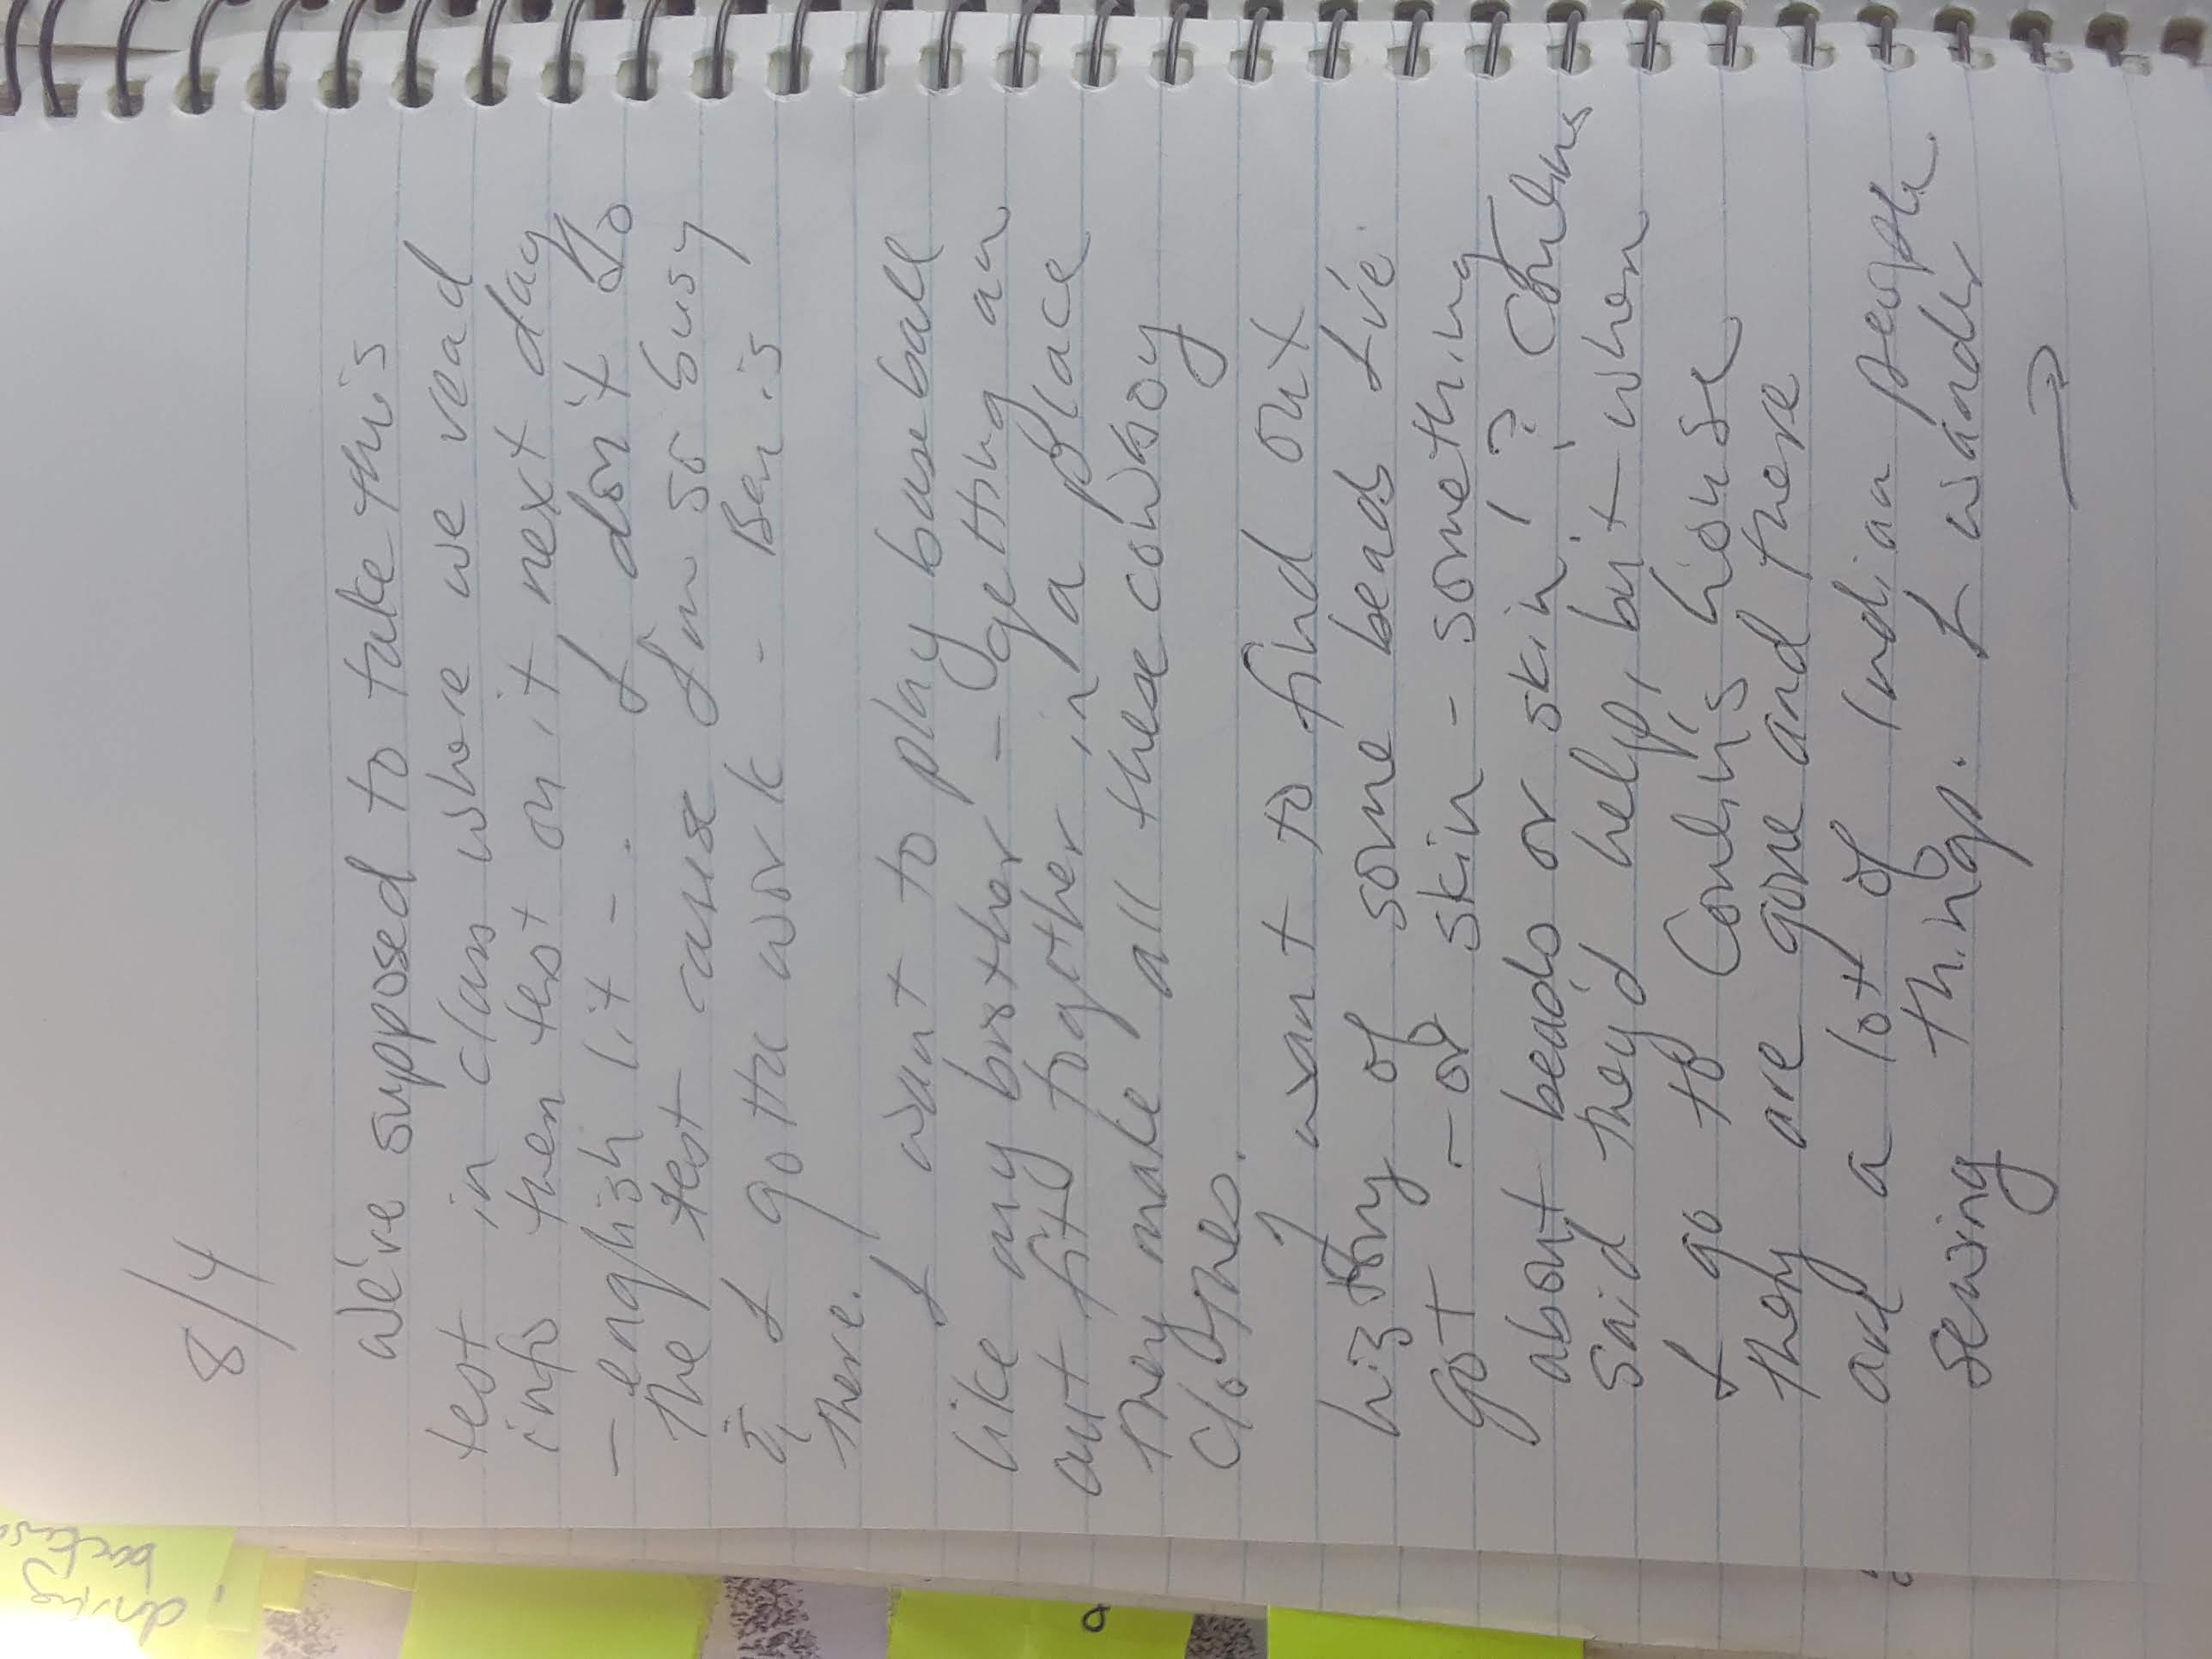 8/4
We're supposed to take this
test in class where we read
info then test on it next day
- english lit - . I don't do
the test cause I'm so busy
& I gotta work - Ben is
there.
I want to play baseball
like my brother - getting an
out fit together in a place
They make all these cowboy
clothes.
I want to find out
history of some beads I've
got - or skin - something
about beads or skin! ?
said they'd help, but when
I go to Conlin's house
they are gone and there
are a lot of Indian people
sewing things. I wander
→
driving